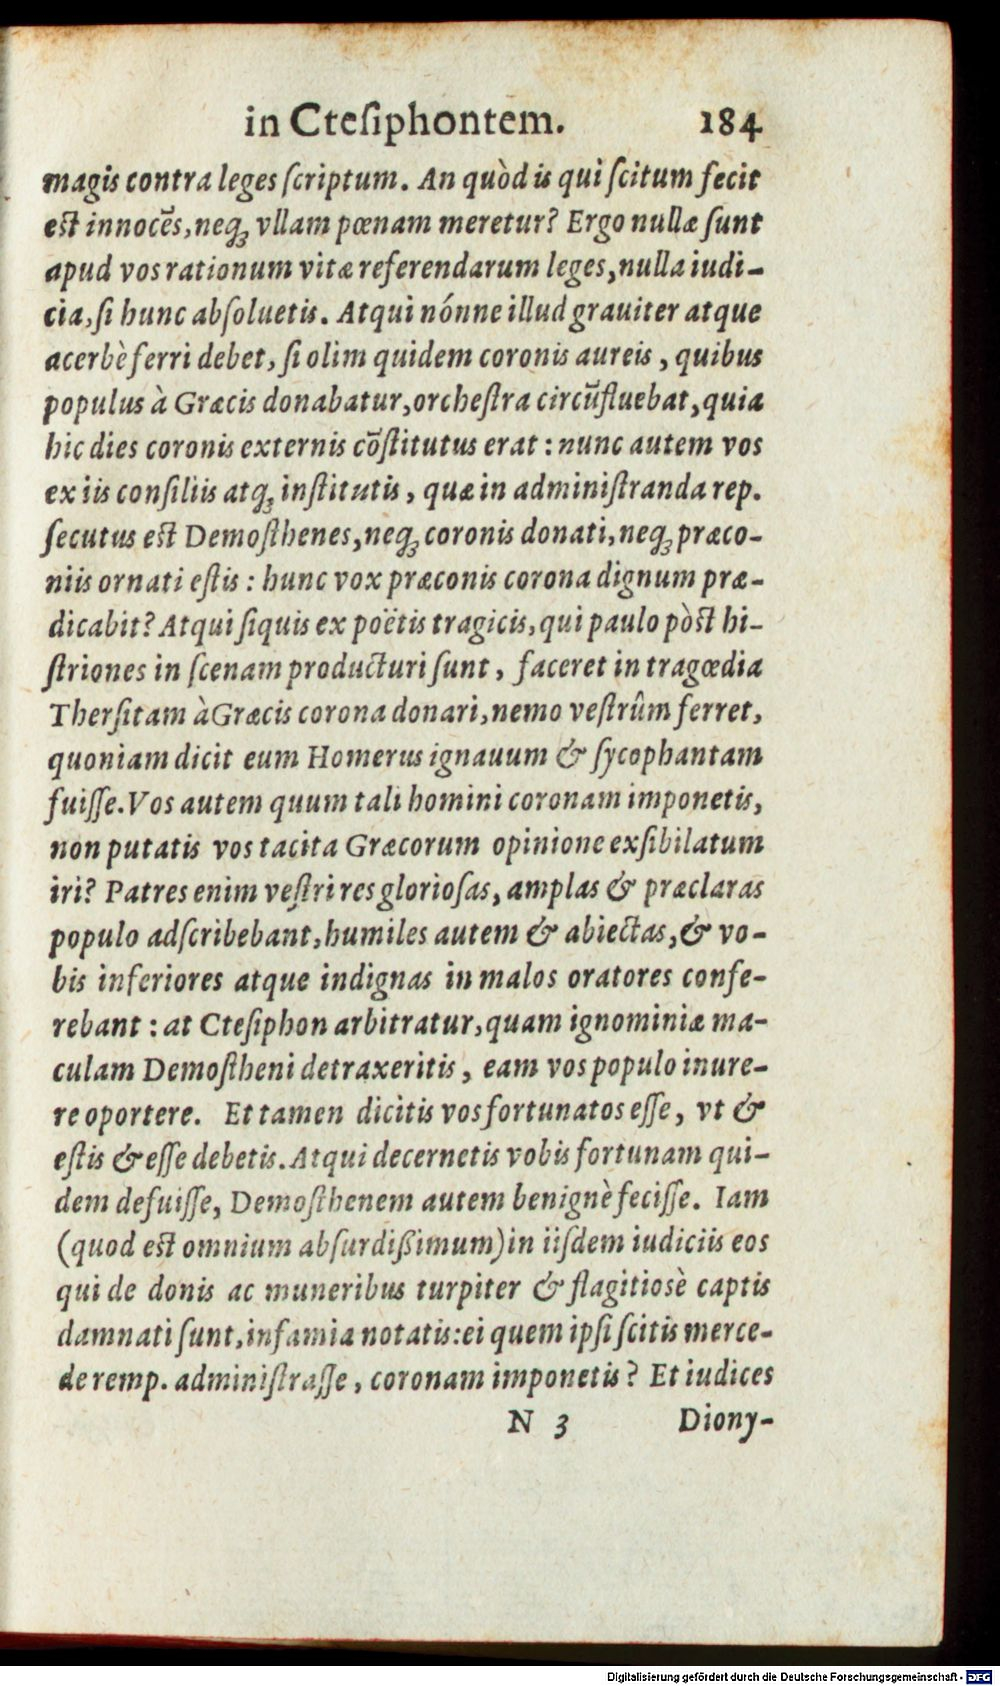 in Cteſiphontem. 184
magis contra leges ſcriptum. An quòd is qui ſcitum fecit
est innocēs, neq; vllam pœnam meretur? Ergo nullæ ſunt
apud vos rationum vitæ referendarum leges, nulla iudi-
cia, ſi hunc abſoluetis. Atqui nónne illud grauiter atque
acerbè ferri debet, ſi olim quidem coronis aureis, quibus
populus à Græcis donabatur, orcheſtra circūfluebat, quia
hic dies coronis externis cōſtitutus erat: nunc autem vos
ex iis conſiliis atq; inſtitutis, quæ in adminiſtranda rep.
ſecutus est Demoſthenes, neq; coronis donati, neq; præco-
niis ornati eſtis: hunc vox præconis corona dignum præ-
dicabit? Atqui ſiquis ex poëtis tragicis, qui paulo pòst hi-
ſtriones in ſcenam producturi ſunt, faceret in tragœdia
Therſitam à Græcis corona donari, nemo veſtrûm ferret,
quoniam dicit eum Homerus ignauum & ſycophantam
fuiſſe. Vos autem quum tali homini coronam imponetis,
non putatis vos tacita Græcorum opinione exſibilatum
iri? Patres enim veſtri res glorioſas, amplas & præclaras
populo adſcribebant, humiles autem & abiectas, & vo-
bis inferiores atque indignas in malos oratores confe-
rebant: at Cteſiphon arbitratur, quam ignominiæ ma-
culam Demoſtheni detraxeritis, eam vos populo inure-
re oportere. Et tamen dicitis vos fortunatos eſſe, vt &
eſtis & eſſe debetis. Atqui decernetis vobis fortunam qui-
dem defuiſſe, Demoſthenem autem benignè feciſſe. Iam
(quod est omnium abſurdißimum) in iiſdem iudiciis eos
qui de donis ac muneribus turpiter & flagitiosè captis
damnati ſunt, infamia notatis: ei quem ipſi ſcitis merce-
de remp. adminiſtraſſe, coronam imponetis? Et iudices
N 3 Diony-
Digitalisierung gefördert durch die Deutsche Forschungsgemeinschaft - DFG